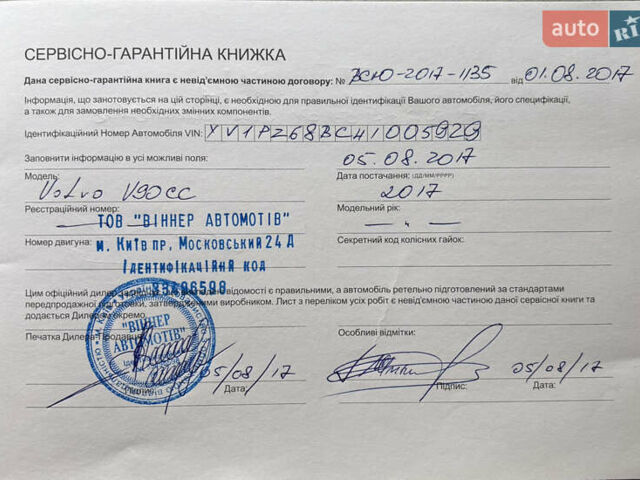 auto RI
СЕРВІСНО-ГАРАНТІЙНА КНИЖКА
Дана сервісно-гарантійна книга є невід'ємною частиною договору: № ЖСЮ-2017-1135 від 01.08.2017
Інформація, що занотовується на цій сторінці, є необхідною для правильної ідентифікації Вашого автомобіля, його специфікації,
а також для замовлення необхідних змінних компонентів.
Ідентифікаційний Номер Автомобіля VIN: YV1PZ68BCH1005929
Заповнити інформацію в усі можливі поля: 05.08.2017
Модель: Дата постачання: (ДД/ММ/РРРР)
Volvo V90CC 2017
Реєстраційний номер: Модельний рік:
ТОВ "ВІННЕР АВТОМОТІВ"
Номер двигуна: м. Київ пр. Московський 24 Д Секретний код колісних гайок:
Ідентифікаційний код
Цим офіційний дилер відомості є правильними, а автомобіль ретельно підготовлений за стандартами
передпродажної підготовки, затвердженими виробником. Лист з переліком усіх робіт є невід'ємною частиною даної сервісної книги та
додається Дилером окремо.
Печатка Дилера Особливі відмітки:
"ВІННЕР АВТОМОТІВ"
05/08/17 05/08/17
Дата: Підпис: Дата: